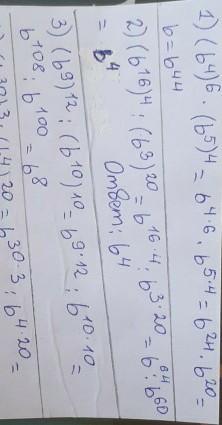 1) (b4)6 · (b5)4 = b4·6 · b5·4 = b24 · b20 =
b = b44
2) (b16)4 : (b3)20 = b16·4 : b3·20 = b64 : b60
= b4 Ответ: b4
3) (b9)12 : (b10)10 = b9·12 : b10·10 =
b108 : b100 = b8
30)3 : (b4)20 = b30·3 : b4·20 =